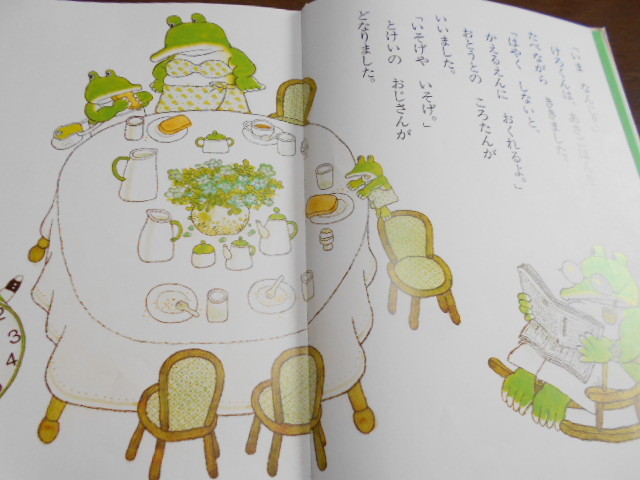 「いま なんじ
けろくんは、あさごはんを
たべながら ききました。
「はやく しないと、
かえるえんに おくれるよ。」
おとうとの ころたんが
いいました。
「いそげや いそげ。」
とけいの おじさんが
どなりました。
2
3
4